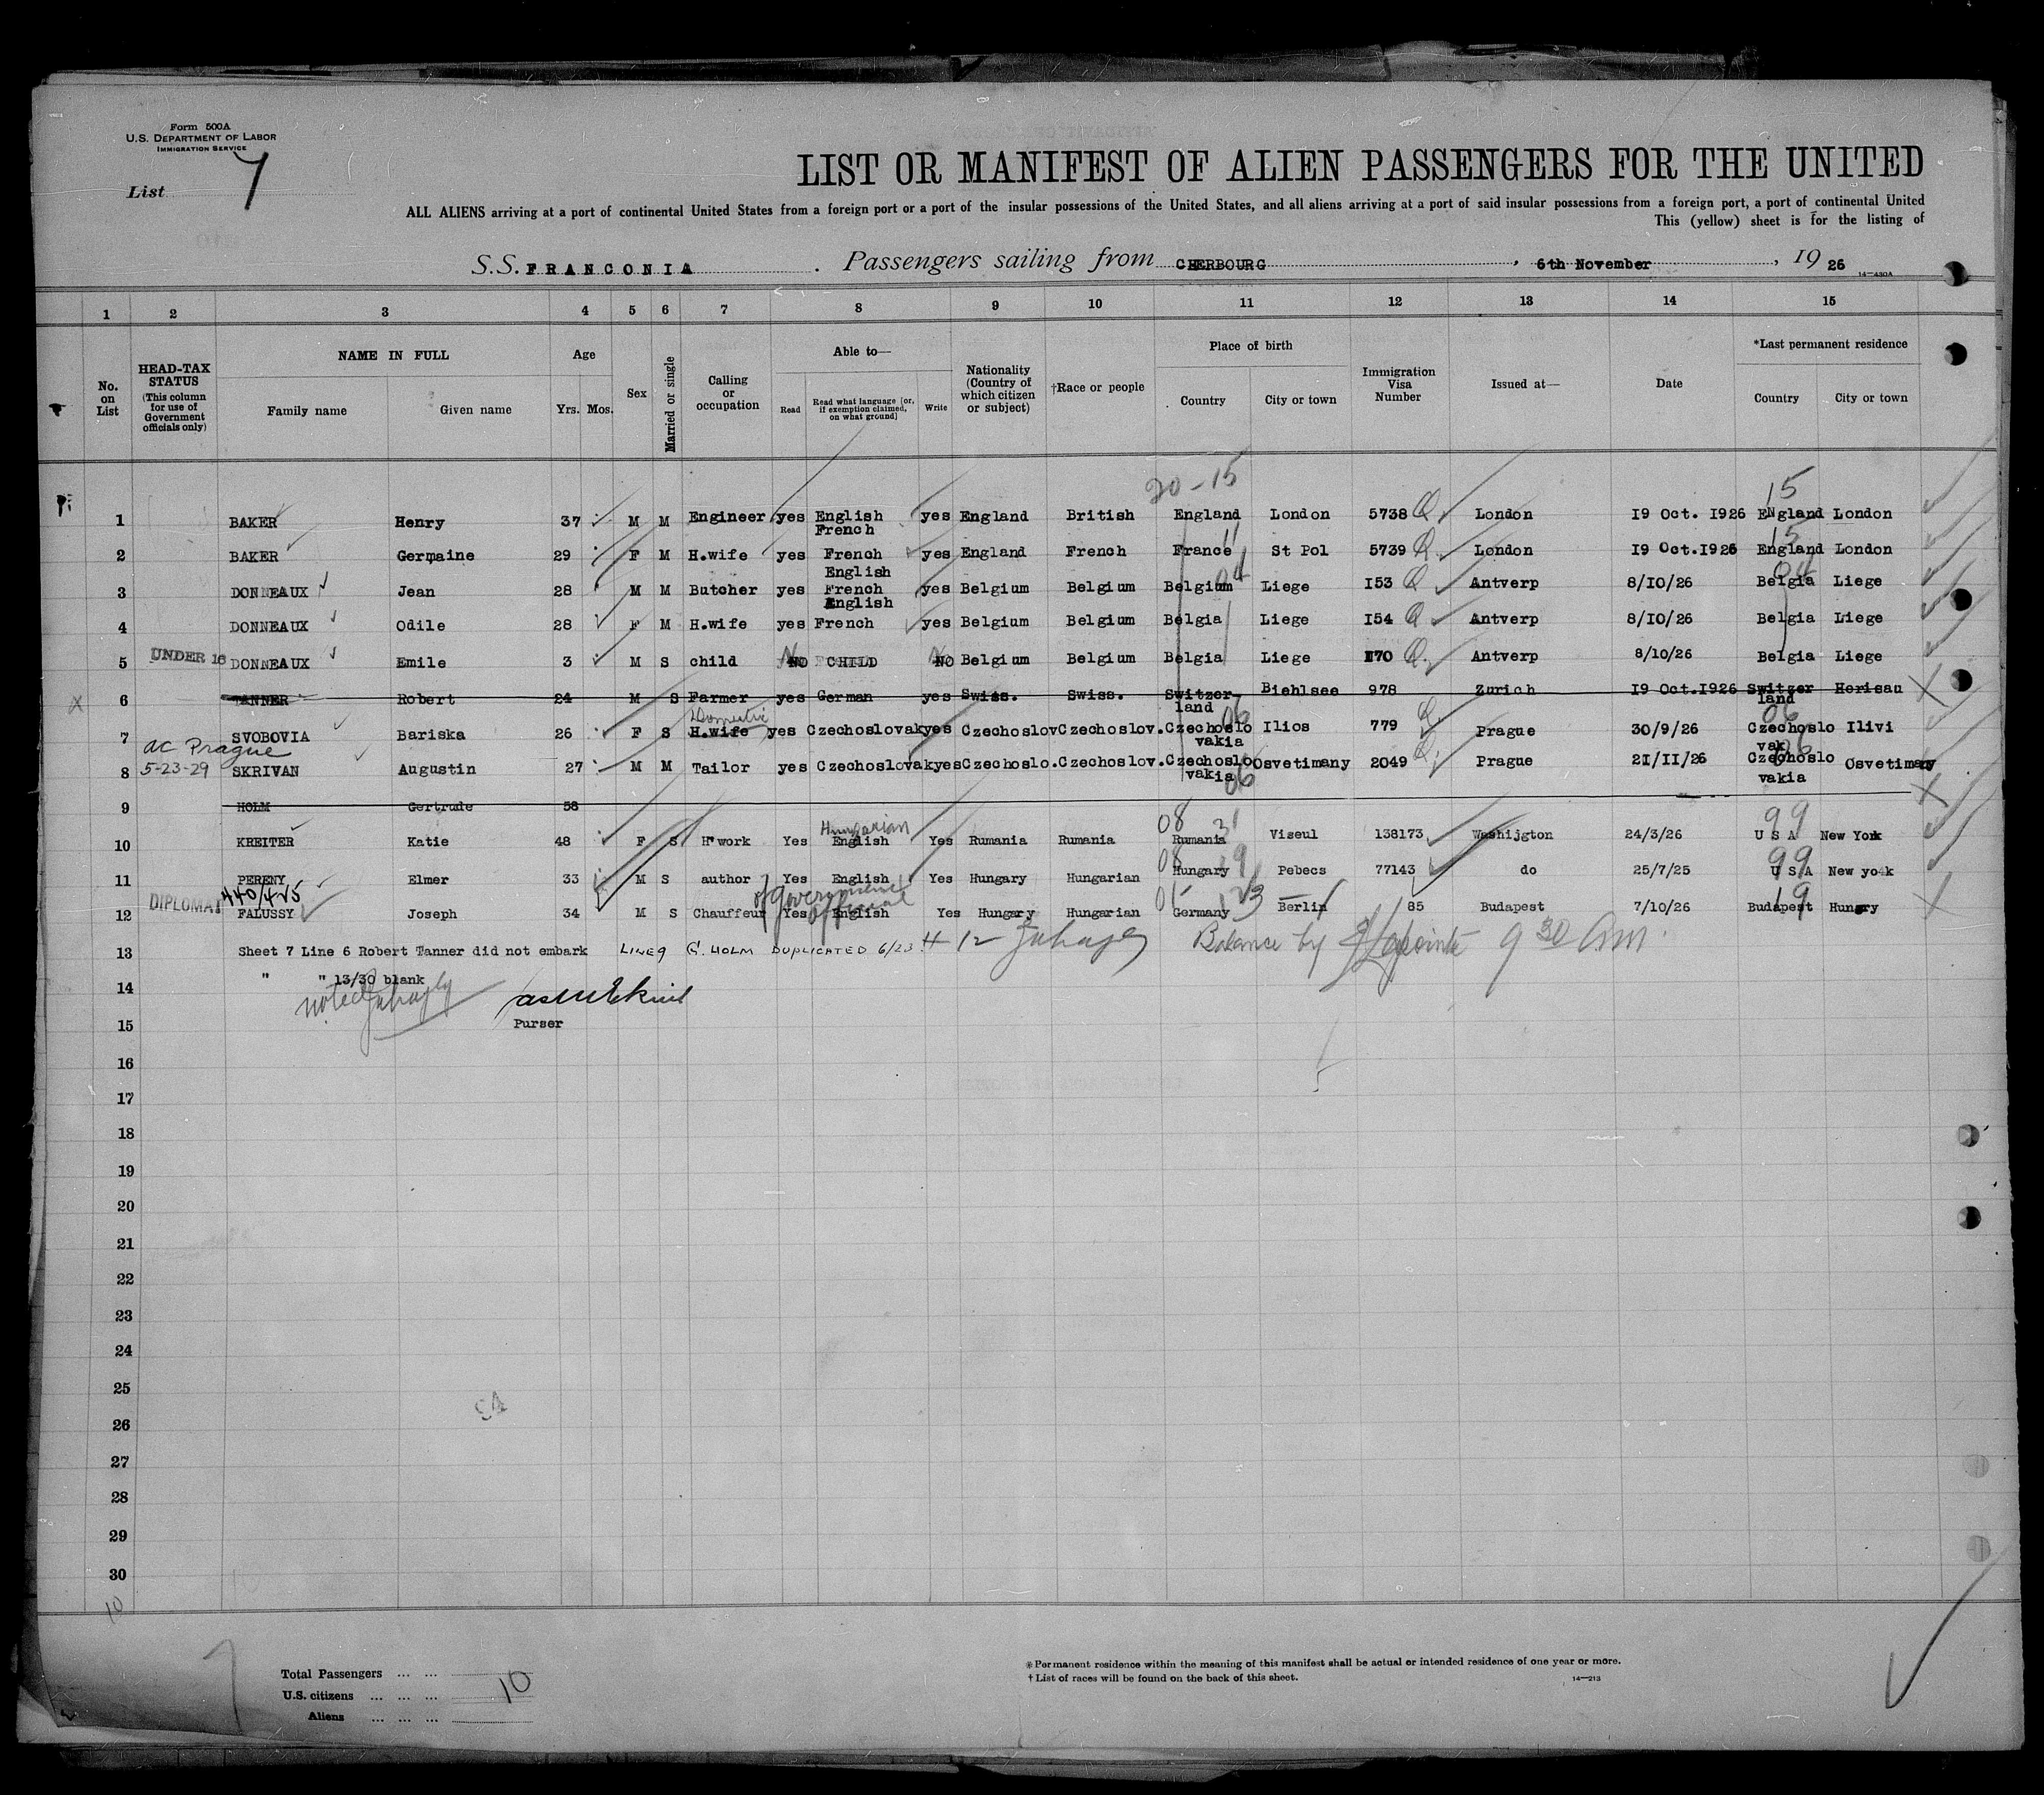 Form 500A
U.S. DEPARTMENT OF LABOR
IMMIGRATION SERVICE
List 7
LIST OR MANIFEST OF ALIEN PASSENGERS FOR THE UNITED
ALL ALIENS arriving at a port of continental United States from a foreign port or a port of the insular possessions of the United States, and all aliens arriving at a port of said insular possessions from a foreign port, a port of continental United
This (yellow) sheet is for the listing of
S.S. FRANCONIA . Passengers sailing from CHERBOURG , 6th November , 19 26
14—430A
1 2 3 4 5 6 7 8 9 10 11 12 13 14 15
No. on List
HEAD-TAX STATUS (This column for use of Government officials only)
NAME IN FULL
Family name Given name
Age
Yrs. Mos.
Sex
Married or single
Calling or occupation
Able to—
Read Read what language [or, if exemption claimed, on what ground] Write
Nationality (Country of which citizen or subject)
†Race or people
Place of birth
Country City or town
Immigration Visa Number
Issued at—
Date
*Last permanent residence
Country City or town
20-15 15
1 BAKER Henry 37 M M Engineer yes English French yes England British England London 5738 Q London 19 Oct. 1926 England London
11 15
2 BAKER Germaine 29 F M H.wife yes French English yes England French France St Pol 5739 Q London 19 Oct.1926 England London
04 04
3 DONNEAUX Jean 28 M M Butcher yes French English yes Belgium Belgium Belgium Liege I53 Q Antwerp 8/10/26 Belgia Liege
4 DONNEAUX Odile 28 F M H.wife yes French yes Belgium Belgium Belgia Liege I54 Q Antwerp 8/10/26 Belgia Liege
5 UNDER 16 DONNEAUX Emile 3 M S child NO CHILD NO Belgium Belgium Belgia Liege 170 Q Antwerp 8/10/26 Belgia Liege
X 6 TANNER Robert 24 M S Farmer yes German yes Swiss. Swiss. Switzer-land Biehlsee 978 Zurich 19 Oct.1926 Switzer land Herisau X
Domestic 06 06
7 SVOBOVIA Bariska 26 F S H.wife yes Czechoslovak yes Czechoslov Czechoslov. Czechoslo vakia Ilios 779 Q Prague 30/9/26 Czechoslo vak Ilivi
ac Prague
8 5-23-29 SKRIVAN Augustin 27 M M Tailor yes Czechoslovak yes Czechoslo. Czechoslov. Czechoslo vakia Osvetimany 2049 Q Prague 2I/II/26 Czechoslo vakia Osvetimany
06 06
9 HOLM Gertrude 58 X
Hungarian 08 31 99
10 KREITER Katie 48 F S H'work Yes English Yes Rumania Rumania Rumania Viseul 138173 Washijgton 24/3/26 U S A New York
08 19 99
11 PERENY Elmer 33 M S author Yes English Yes Hungary Hungarian Hungary Pebecs 77143 do 25/7/25 U S A New yo4k
440/425
of government official 19
12 DIPLOMAT FALUSSY Joseph 34 M S Chauffeur Yes English Yes Hungary Hungarian Germany Berlin 85 Budapest 7/10/26 Budapest Hungry X
13 Sheet 7 Line 6 Robert Tanner did not embark LINE 9 G. HOLM DUPLICATED 6/23 # 12 Balance by 9 30 am.
14 " " 13/30 blank
noted
15 Purser
16
17
18
19
20
21
22
23
24
25
26
27
28
29
30
10
Total Passengers ... ...
U.S. citizens ... ... ... 10
Aliens ... ... ...
*Permanent residence within the meaning of this manifest shall be actual or intended residence of one year or more.
†List of races will be found on the back of this sheet.
14—213